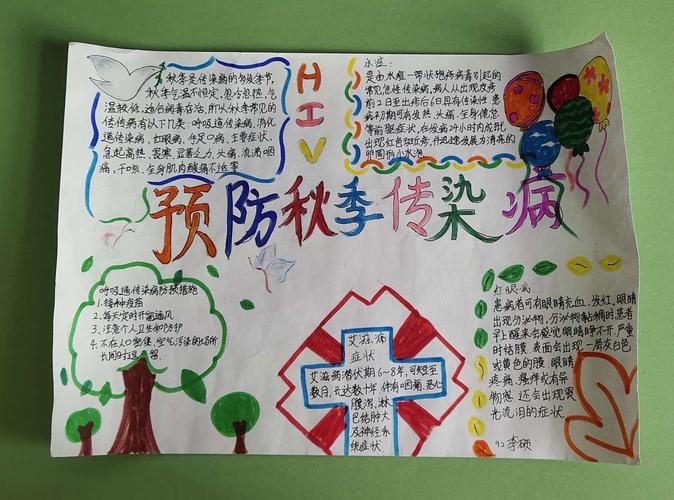 秋季是传染病的多发季节,
秋季气温不恒定,忽冷忽热,气
温较低,适合病毒存活,所以秋季常见的
传传病有以下几类:呼吸道传染病,消化
道传染病,红眼病,手足口病,主要症状,
急起高热,畏寒,显著乏力,头痛,流涕咽
痛,干咳,全身肌肉酸痛不适等
HIV
水痘:
是由水痘一带状疱疹病毒引起的
常见急性传染病,病人从出现皮疹
前2日至出疹后6日具有传染性,患
病初期可有发热、头痛、全身倦怠
等前驱症状,在发病24小时内
出现红色斑丘疹,并迅速发展为清亮的
卵圆形小水泡
预防秋季传染病
呼吸道传染病防预措施
1.接种疫苗
2.每天定时开窗通风
3.注意个人卫生和防护
4.不在人口密集、空气污染的场所
长时间逗留
艾滋病
症状
艾滋病潜伏期6~8年,可短至
数月,长达数十年伴有咽痛,恶心
腹泻,淋
巴结肿大
及神经系
统症状.
红眼病:
患病者可有眼睛充血、发红,眼睛
出现分泌物,分泌物黏稠时患者
早上醒来会感觉眼睛睁不开,严重
时结膜表面会出现一层灰白色
或黄色的膜眼睛
疼痛、瘙痒或有异
物感,还会出现畏
光流泪的症状
92 李硕